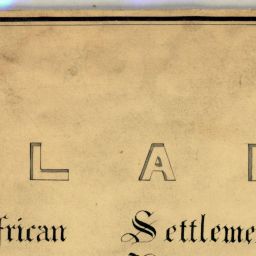 L A
frican Settleme